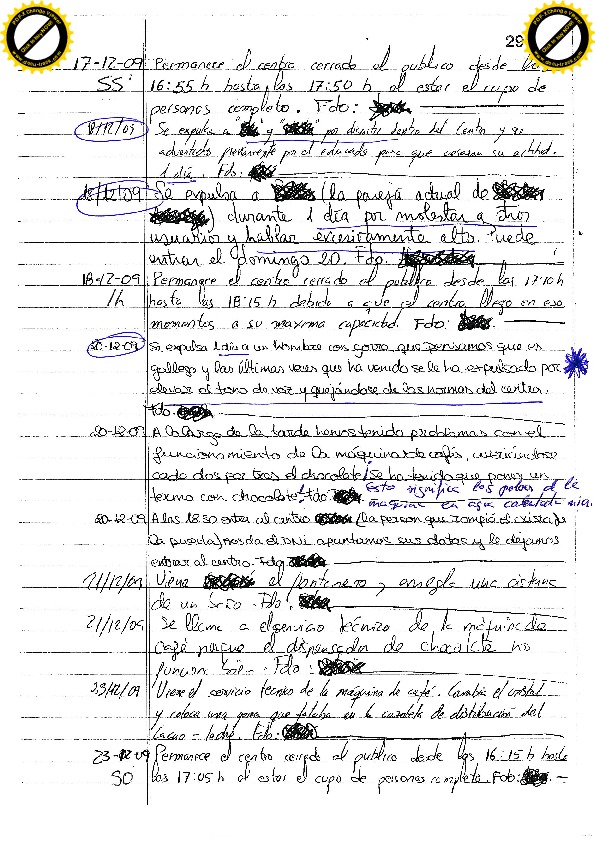 29
17-12-09 Permanece el centro cerrado al publico desde las
SS 16:55 h hasta las 17:50 h al estar el cupo de
personas completo. Fdo:
18/12/09 Se expulsa a " " y " " por discutir dentro del centro y ser
advertidos previamente por el educador para que cesaran su actitud.
1 día. Fdo:
18/12/09 Se expulsa a (la pareja actual de
) durante 1 día por molestar a otros
usuarios y hablar excesivamente alto. Puede
entrar el domingo 20. Fdo.
18-12-09 Permanece el centro cerrado al publico desde las 17:10 h
1h hasta las 18:15 h debido a que el centro llego en ese
momentos a su maxima capacidad. Fdo:
20-12-09 Se expulsa 1 día a un hombre con gorra que pensamos que es
gallego y las últimas veces que ha venido se le ha expulsado por
elevar el tono de voz y quejándose de las normas del centro.
Fdo
20-12-09 A lo largo de la tarde hemos tenido problemas con el
funcionamiento de la máquina de cafés,
cada dos por tres el chocolate! Se ha tenido que poner un
termo con chocolate! Fdo Esto significa los polvos de la
maquina en agua calentada
20-12-09 A las 18:50 entra al centro (la person que rompió el
la puerta) nos da el DNI apuntamos sus datos y le dejamos
entrar al centro. Fdo
21/12/09 Viene el fontanero y arregla una cisterna
de un baño. Fdo:
21/12/09 Se llama a el servicio técnico de la máquina de
café porque el dispensador de chocolate no
funciona bien. Fdo:
23/12/09 Viene el servicio tecnico de la máquina de café. Cambia el cristal
y coloca una goma que faltaba en la de distribución del
cacao - leche. Fdo:
23-12-09 Permanece el centro cerrado al publico desde las 16:15 h hasta
50 las 17:05 h al estar el cupo de personas completo. Fdo: